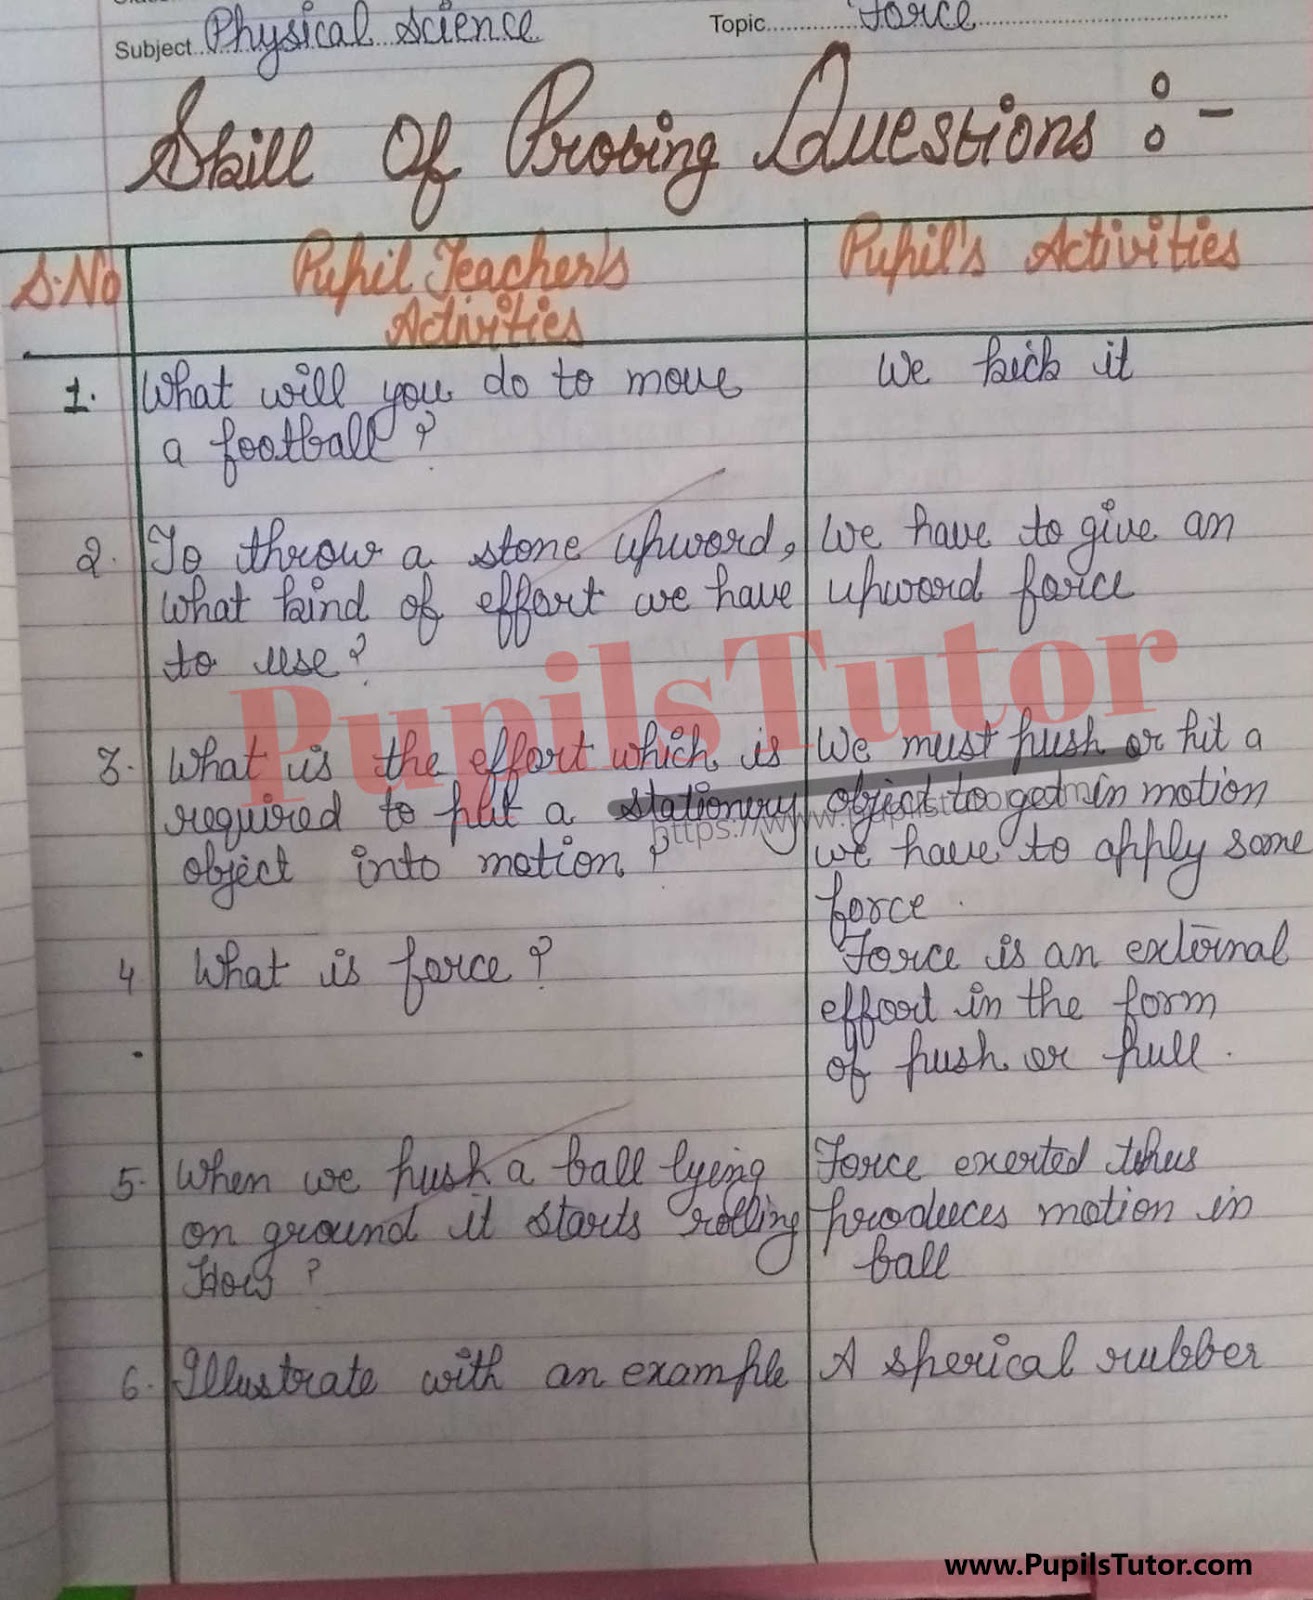 Subject Physical Science Topic Force
Skill Of Probing Questions :-
S.No Pupil Teacher's Activities Pupil's Activities
1. What will you do to move
a football?
We kick it
2. To throw a stone upword,
what kind of effort we have
to use?
We have to give an
upword force
3. What is the effort which is
required to put a stationery
object into motion?
We must push or hit a
object to get in motion
we have to apply some
force.
4 What is force?
Force is an external
effort in the form
of push or pull.
5. When we push a ball lying
on ground it starts rolling
How?
Force exerted thus
produces motion in
ball
6. Illustrate with an example
A sperical rubber
PupilsTutor
www.PupilsTutor.com